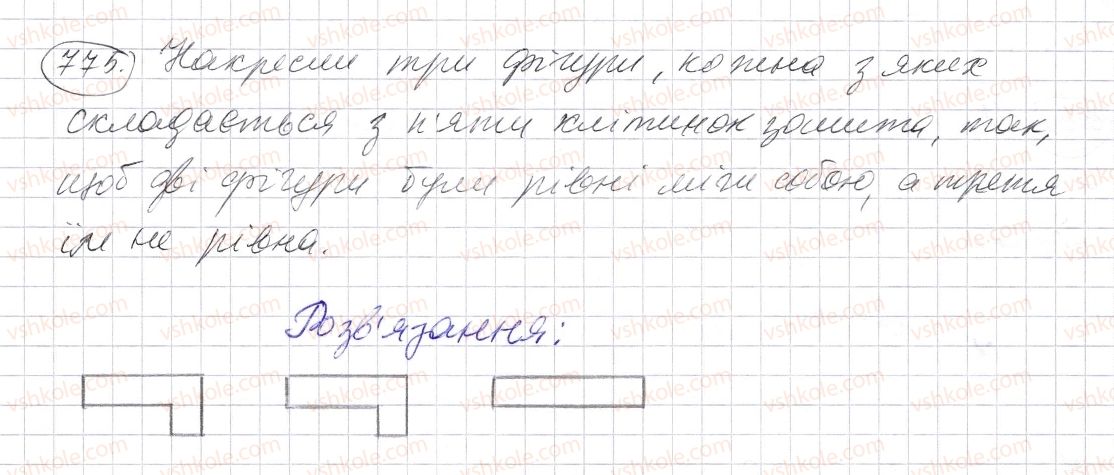 775. Накресли три фігури, кожна з яких
складається з п'яти клітинок зошита, так,
щоб дві фігури були рівні між собою, а третя
їм не рівна.
Розв'язання: